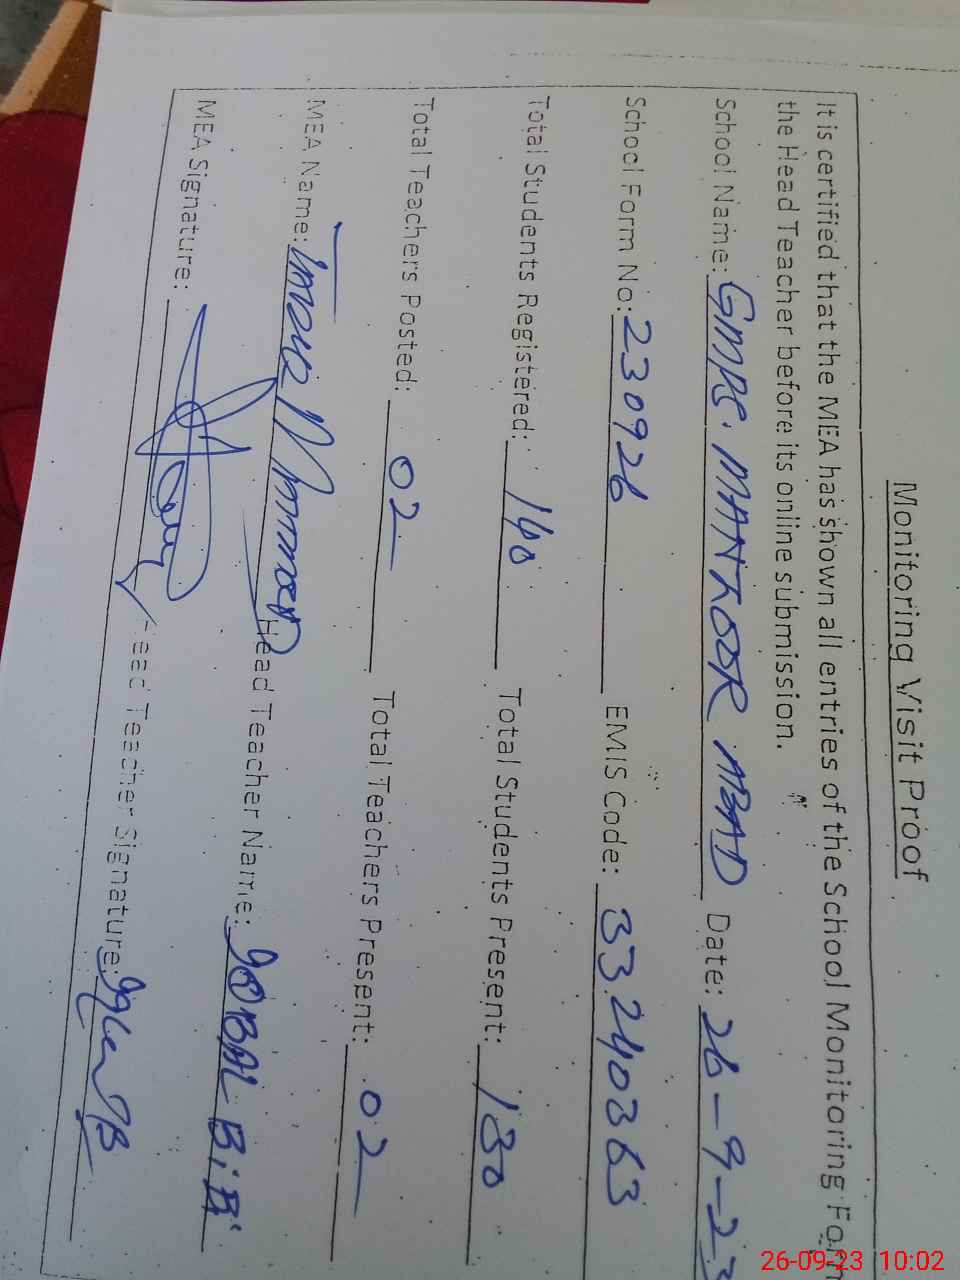 Monitoring Visit Proof
It is certified that the MEA has shown all entries of the School Monitoring Form
the Head Teacher before its online submission.
School Name: GMPS. MANZOOR ABAD Date: 26-9-23
School Form No: 230926 EMIS Code: 33240363
Total Students Registered: 140 Total Students Present: 130
Total Teachers Posted: 02 Total Teachers Present: 02
MEA Name: Head Teacher Name: IQBAL BiBi
MEA Signature: Head Teacher Signature:
26-09-23 10:02